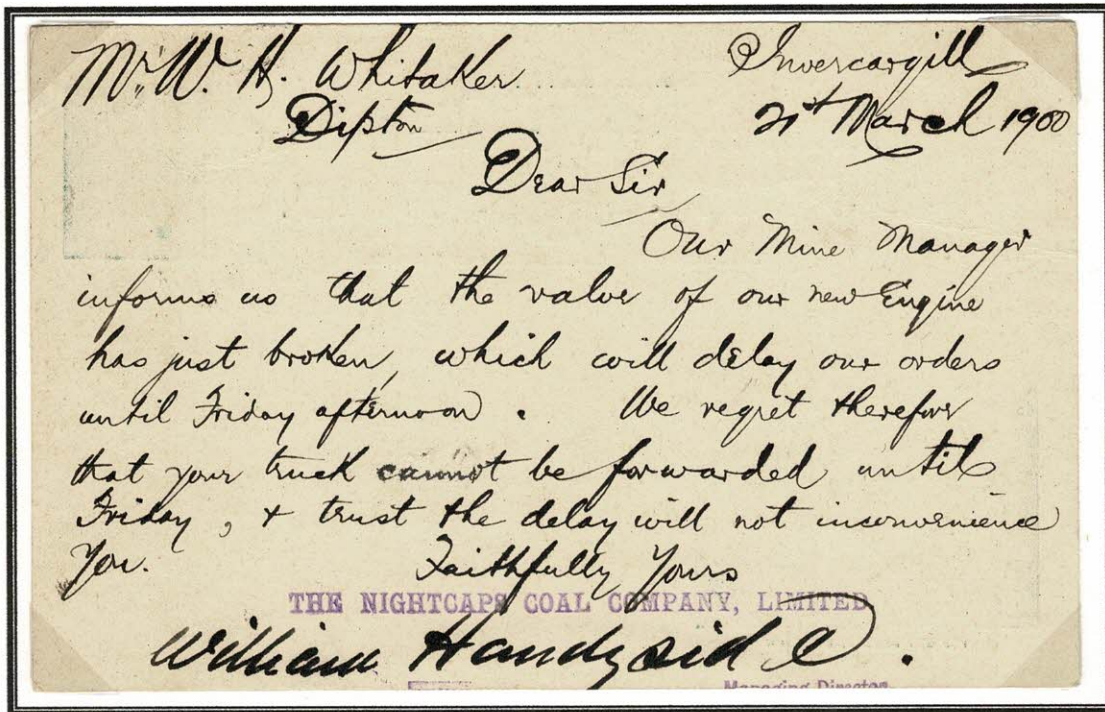 Mr. W. H. Whitaker Invercargill
Dipton 21st March 1900
Dear Sir
Our Mine Manager
informs us that the valve of our new Engine
has just broken, which will delay our orders
until Friday afternoon. We regret therefore
that your truck cannot be forwarded until
Friday, & trust the delay will not inconvenience
You. Faithfully Yours
THE NIGHTCAPS COAL COMPANY, LIMITED
William Handyside.
Managing Director